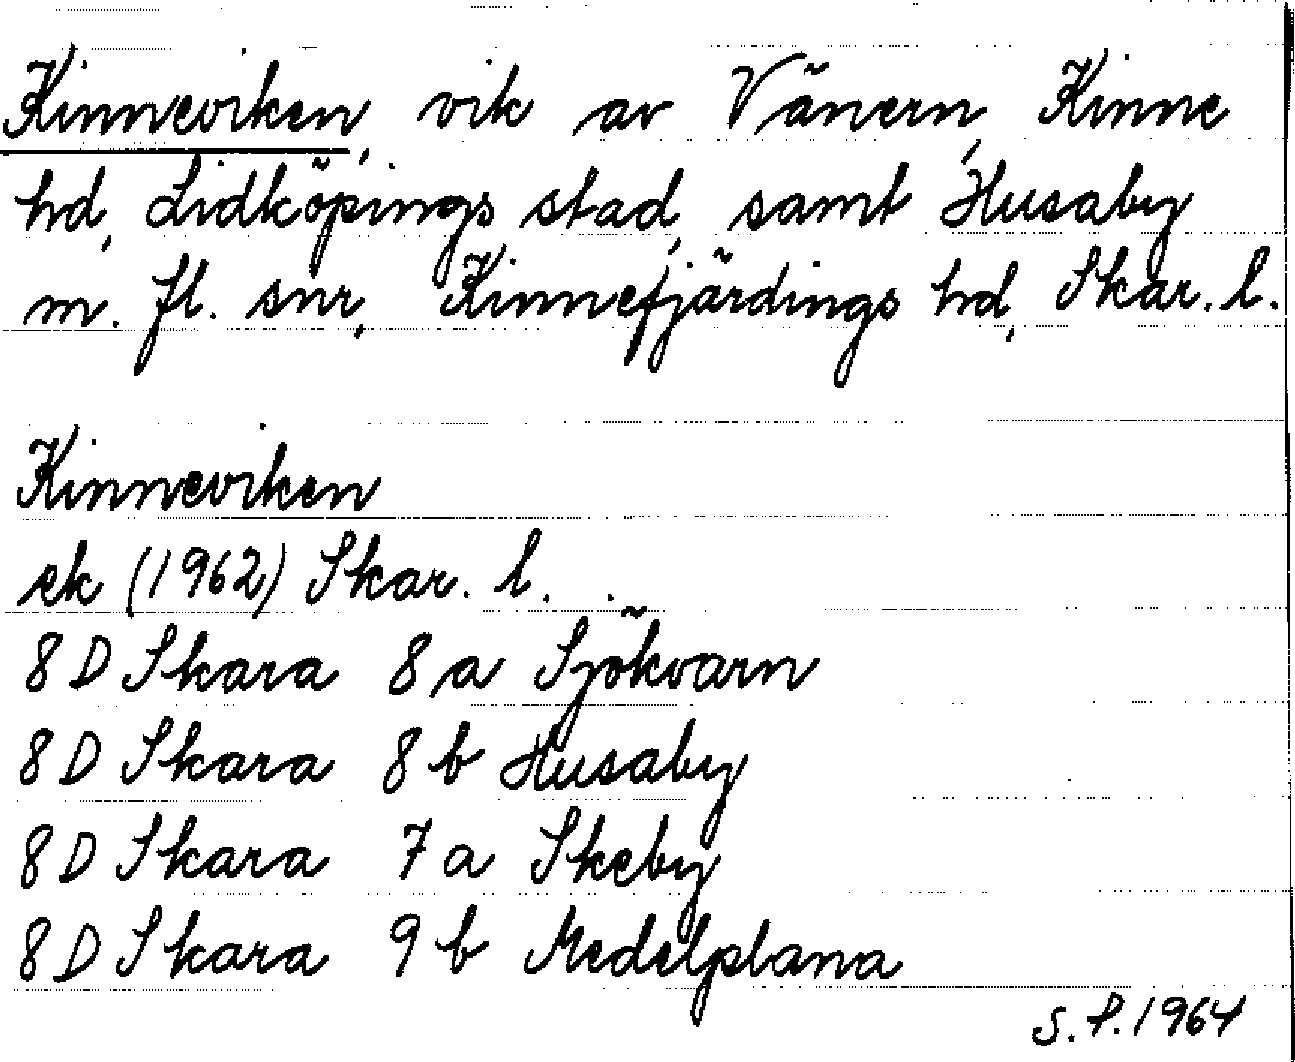 Kinneviken, vik av Vänern, Kinne
hd, Lidköpings stad, samt Husaby
m. fl. snr, Kinnefjärdings hd, Skar. l.
Kinneviken
ek (1962) Skar. l.
8 D Skara 8 a Sjökvarn
8 D Skara 8 b Husaby
8 D Skara 7 a Skeby
8 D Skara 9 b Medelplana
S. P. 1964